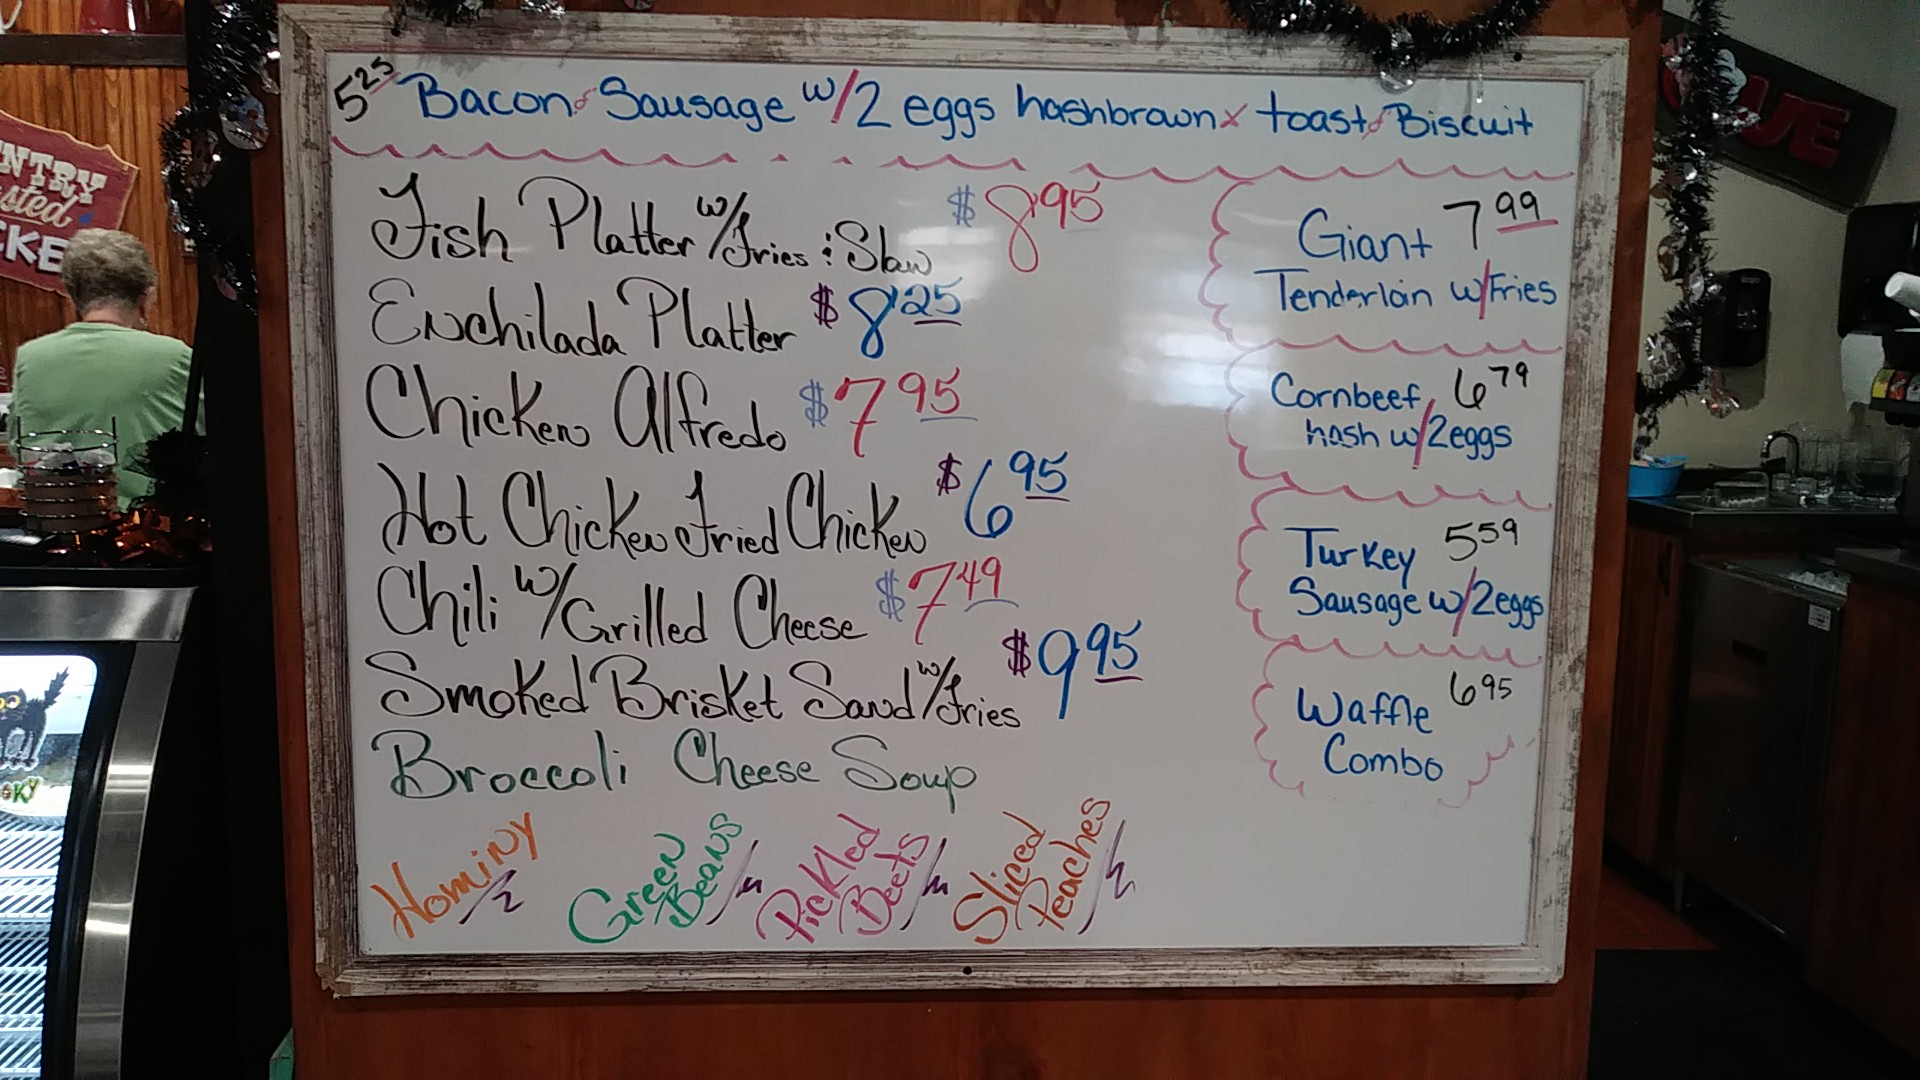 5 25 Bacon or Sausage w/2 eggs hashbrown x toast or Biscuit
Fish Platter w/Fries : Slaw $8 95
Enchilada Platter $8 25
Chicken Alfredo $7 95
Hot Chicken Fried Chicken $6 95
Chili w/Grilled Cheese $7 49
Smoked Brisket Sand w/Fries $9 95
Broccoli Cheese Soup
Hominy
Green
Beans
Pickled
Beets
Sliced
Peaches
Giant 7 99
Tenderloin w/Fries
Cornbeef 6 79
hash w/2eggs
Turkey 5 59
Sausage w/2eggs
Waffle 6 95
Combo